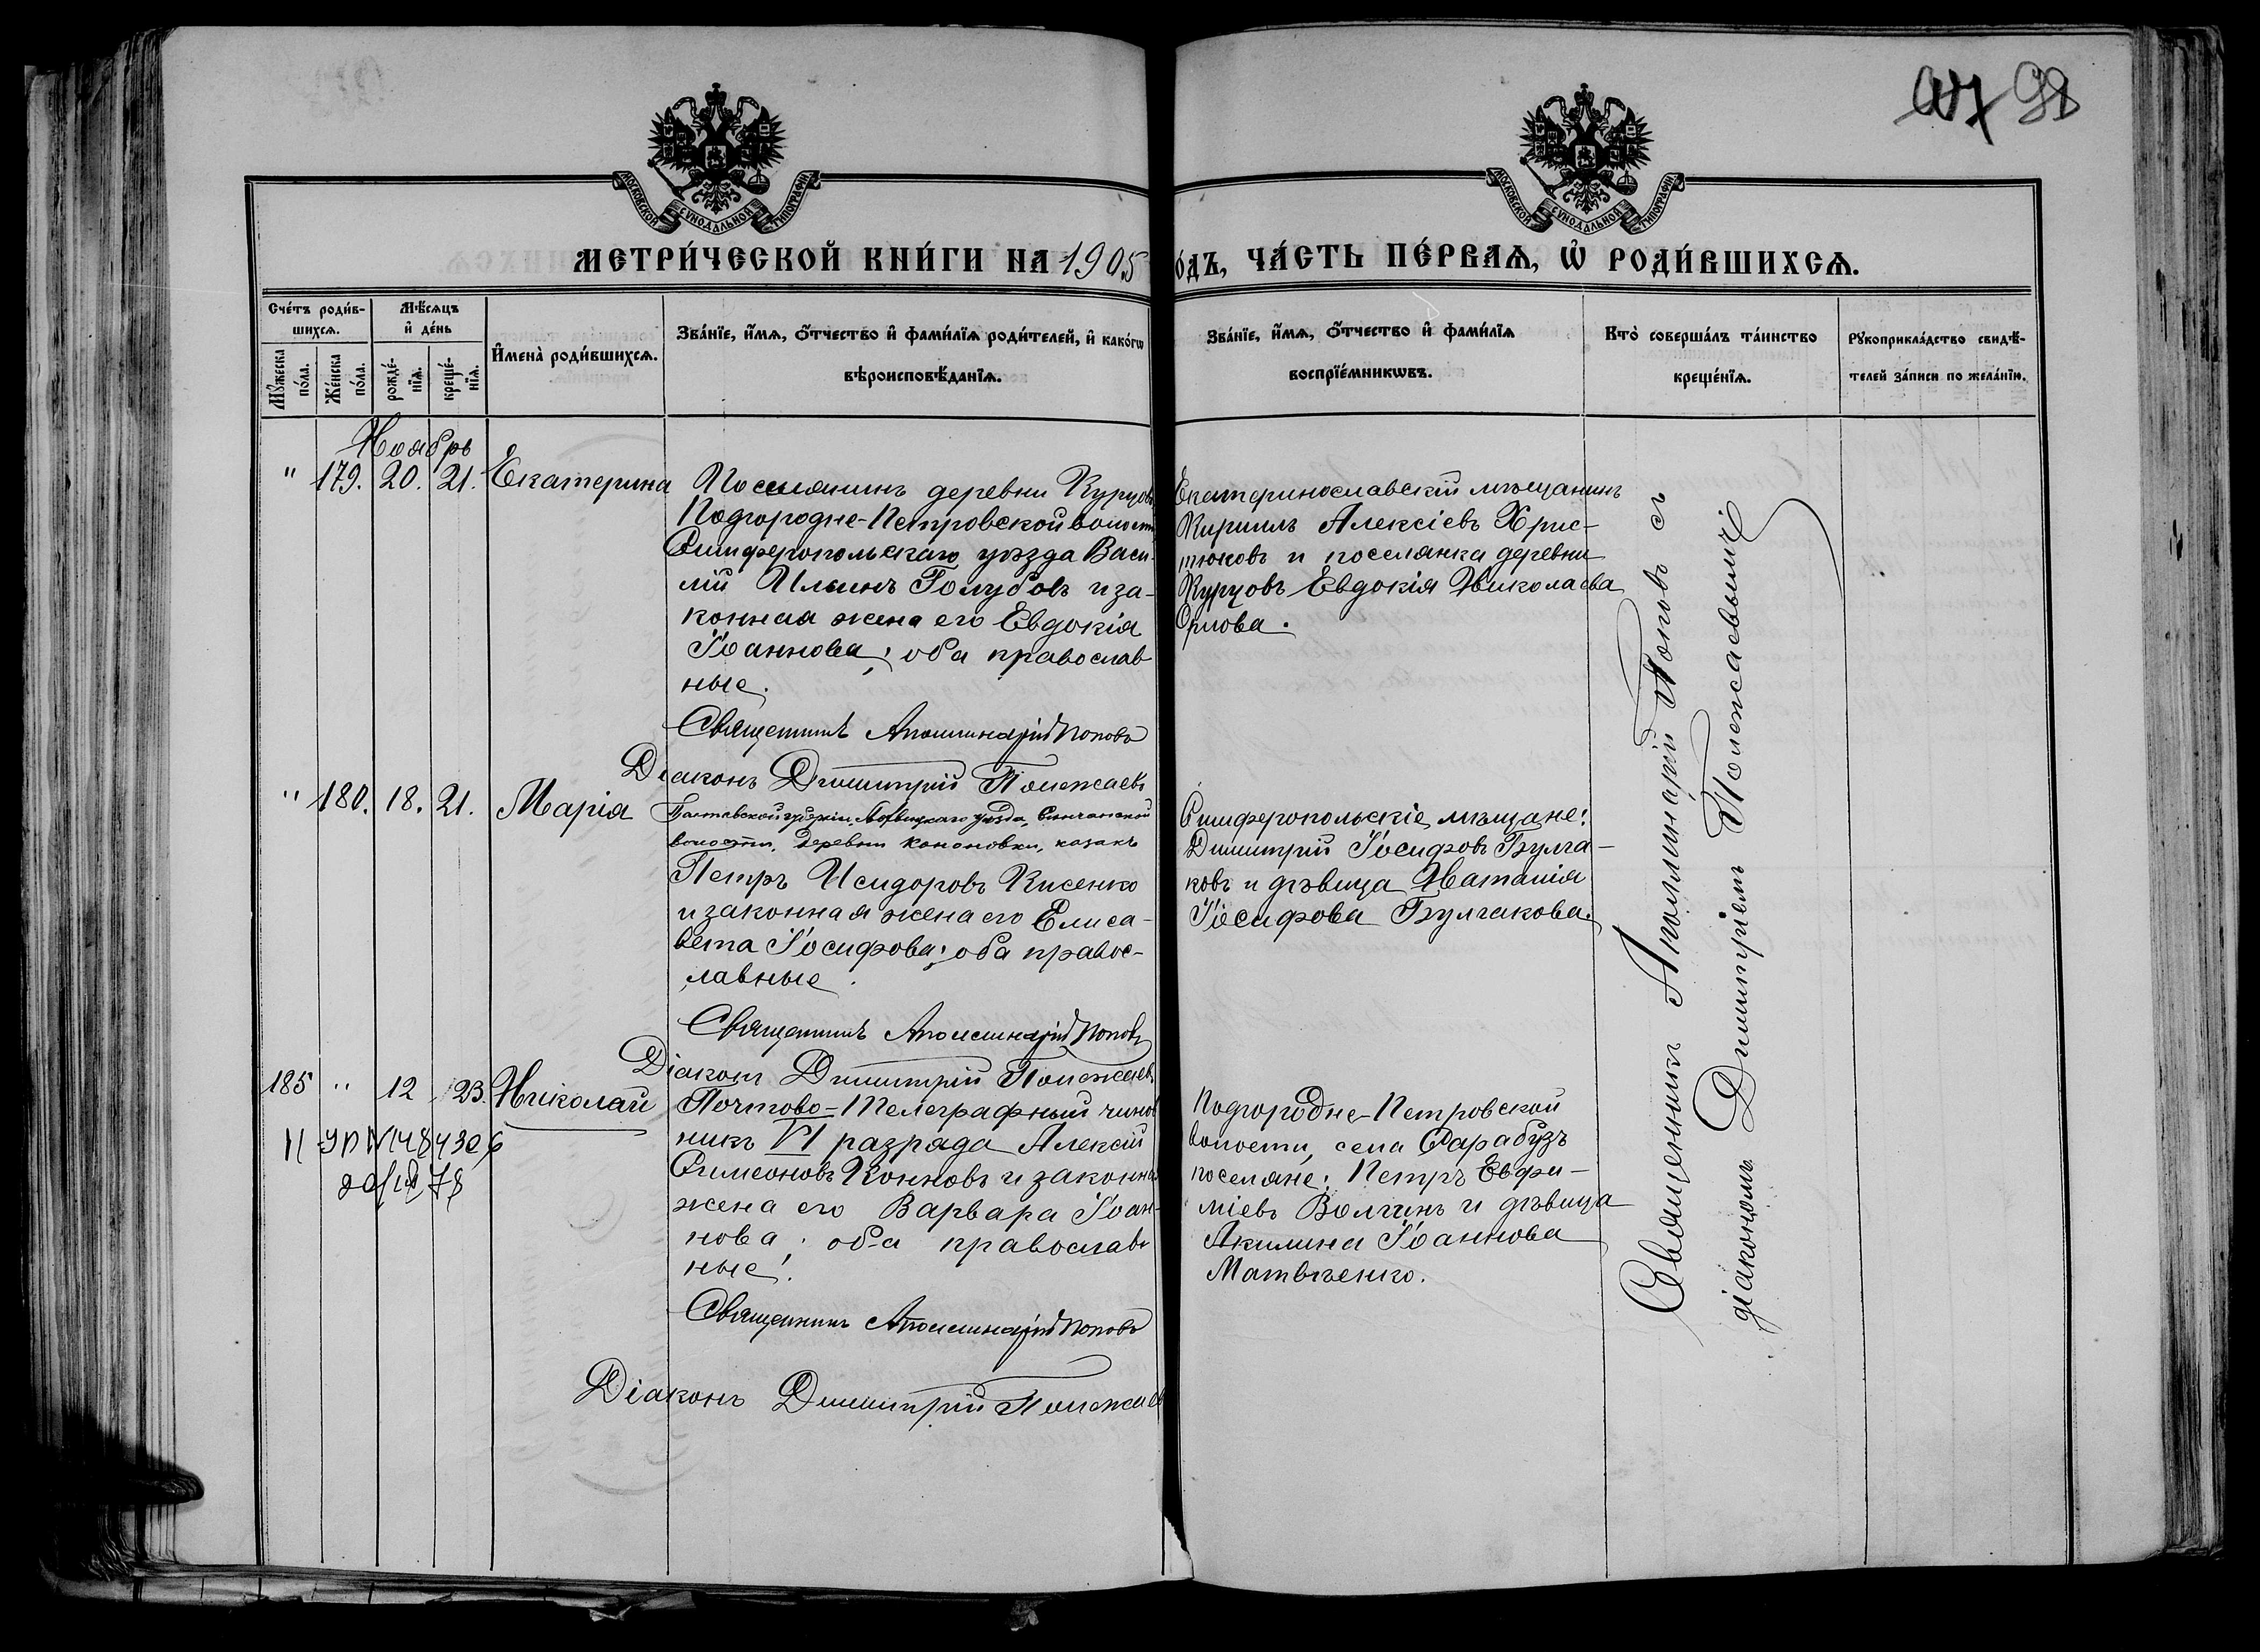 98
МОСКОВСКОЙ СѴНОДАЛЬНОЙ ТИПОГРАФІИ
МОСКОВСКОЙ СѴНОДАЛЬНОЙ ТИПОГРАФІИ
МЕТРИ́ЧЕСКОЙ КНИ́ГИ НА 1905
о́дъ, ЧА́СТЬ ПЕ́РВАѦ, Ѡ҆ РОДИ́ВШИХСѦ.
Сче́тъ роди́в-
шихсѧ.
Мꙋ́жеска
по́ла.
Же́нска
по́ла.
Мѣ́сѧцъ
и҆ де́нь
рожде́-
нїѧ.
креще́-
нїѧ.
И҆мена̀ роди́вшихсѧ.
Зва́нїе, и҆́мѧ, ѻ҆́тчество и҆ фами́лїѧ роди́телей, и҆ како́гѡ
вѣроисповѣ́данїѧ.
Зва́нїе, и҆́мѧ, ѻ҆́тчество и҆ фами́лїѧ
воспрїе́мникѡвъ.
Кто̀ соверша́лъ та́инство
креще́нїѧ.
Рꙋкоприкла́дство свидѣ́-
телей за́писи по жела́нїю.
Ноябрь
" 179. 20. 21. Екатерина
Поселянинъ деревни Курцовъ
Подгородне-Петровской волости
Симферопольскаго уѣзда Васи-
лій Ильинъ Голубовъ и за-
конная жена его Евдокія
Іоаннова; оба православ
ные.
Священникъ Аполлинарій Поповъ
Діаконъ Димитрій Полежаевъ
Екатеринославскій мѣщанинъ
Кириллъ Алексіевъ Хрис-
тюковъ и поселянка деревни
Курцовъ Евдокія Николаева
Орлова.
" 180. 18. 21. Марія
Полтавской губерніи, уѣзда,
волости, деревни Кононовки, казакъ
Петръ Исидоровъ Кисенко
и законная жена его Елиса-
вета Іосифова; оба правос-
лавные.
Священникъ Аполлинарій Поповъ
Діаконъ Димитрій Полежаевъ
Симферопольскіе мѣщане:
Димитрій Іосифовъ Булга-
ковъ и дѣвица Наталія
Іосифова Булгакова.
185 " 12 23. Николай
Почтово-Телеграфный чинов
никъ VI разряда Алексій
Симеоновъ Конновъ и законна
жена его Варвара Іоан-
нова; оба православ
ные.
Священникъ Аполлинарій Поповъ
Діаконъ Димитрій Полежаев
Подгородне-Петровской
волости, села Сарабузъ
поселяне: Петръ Евфи-
міевъ Волгинъ и дѣвица
Акилина Іоаннова
Матвѣенко.
Священникъ Аполлинарій Поповъ съ
діакономъ Димитріемъ Полежаевымъ